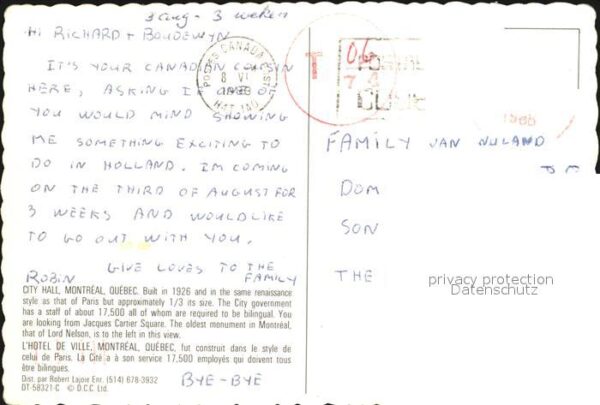 3 aug - 3 weken
HI RICHARD + BOUDEWYN
IT'S YOUR CANADIAN COUSIN
HERE, ASKING IF ONE OF
YOU WOULD MIND SHOWING
ME SOMETHING EXCITING TO
DO IN HOLLAND. IM COMING
ON THE THIRD OF AUGUST FOR
3 WEEKS AND WOULD LIKE
TO GO OUT WITH YOU.
GIVE LOVES TO THE
ROBIN FAMILY
CITY HALL, MONTRÉAL, QUÉBEC. Built in 1926 and in the same renaissance
style as that of Paris but approximately 1/3 its size. The City government
has a staff of about 17,500 all of whom are required to be bilingual. You
are looking from Jacques Cartier Square. The oldest monument in Montréal,
that of Lord Nelson, is to the left in this view.
L'HOTEL DE VILLE, MONTRÉAL, QUÉBEC, fut construit dans le style de
celui de Paris. La Cité a à son service 17,500 employés qui doivent tous
être bilingues.
Dist. par Robert Lajoie Enr. (514) 678-3932
DT-58321-C © D.C.C. Ltd.
BYE-BYE
POSTES CANADA POST
8 VI
T
06
FAMILY VAN NULAND
DOM
SON
THE
privacy protection
Datenschutz